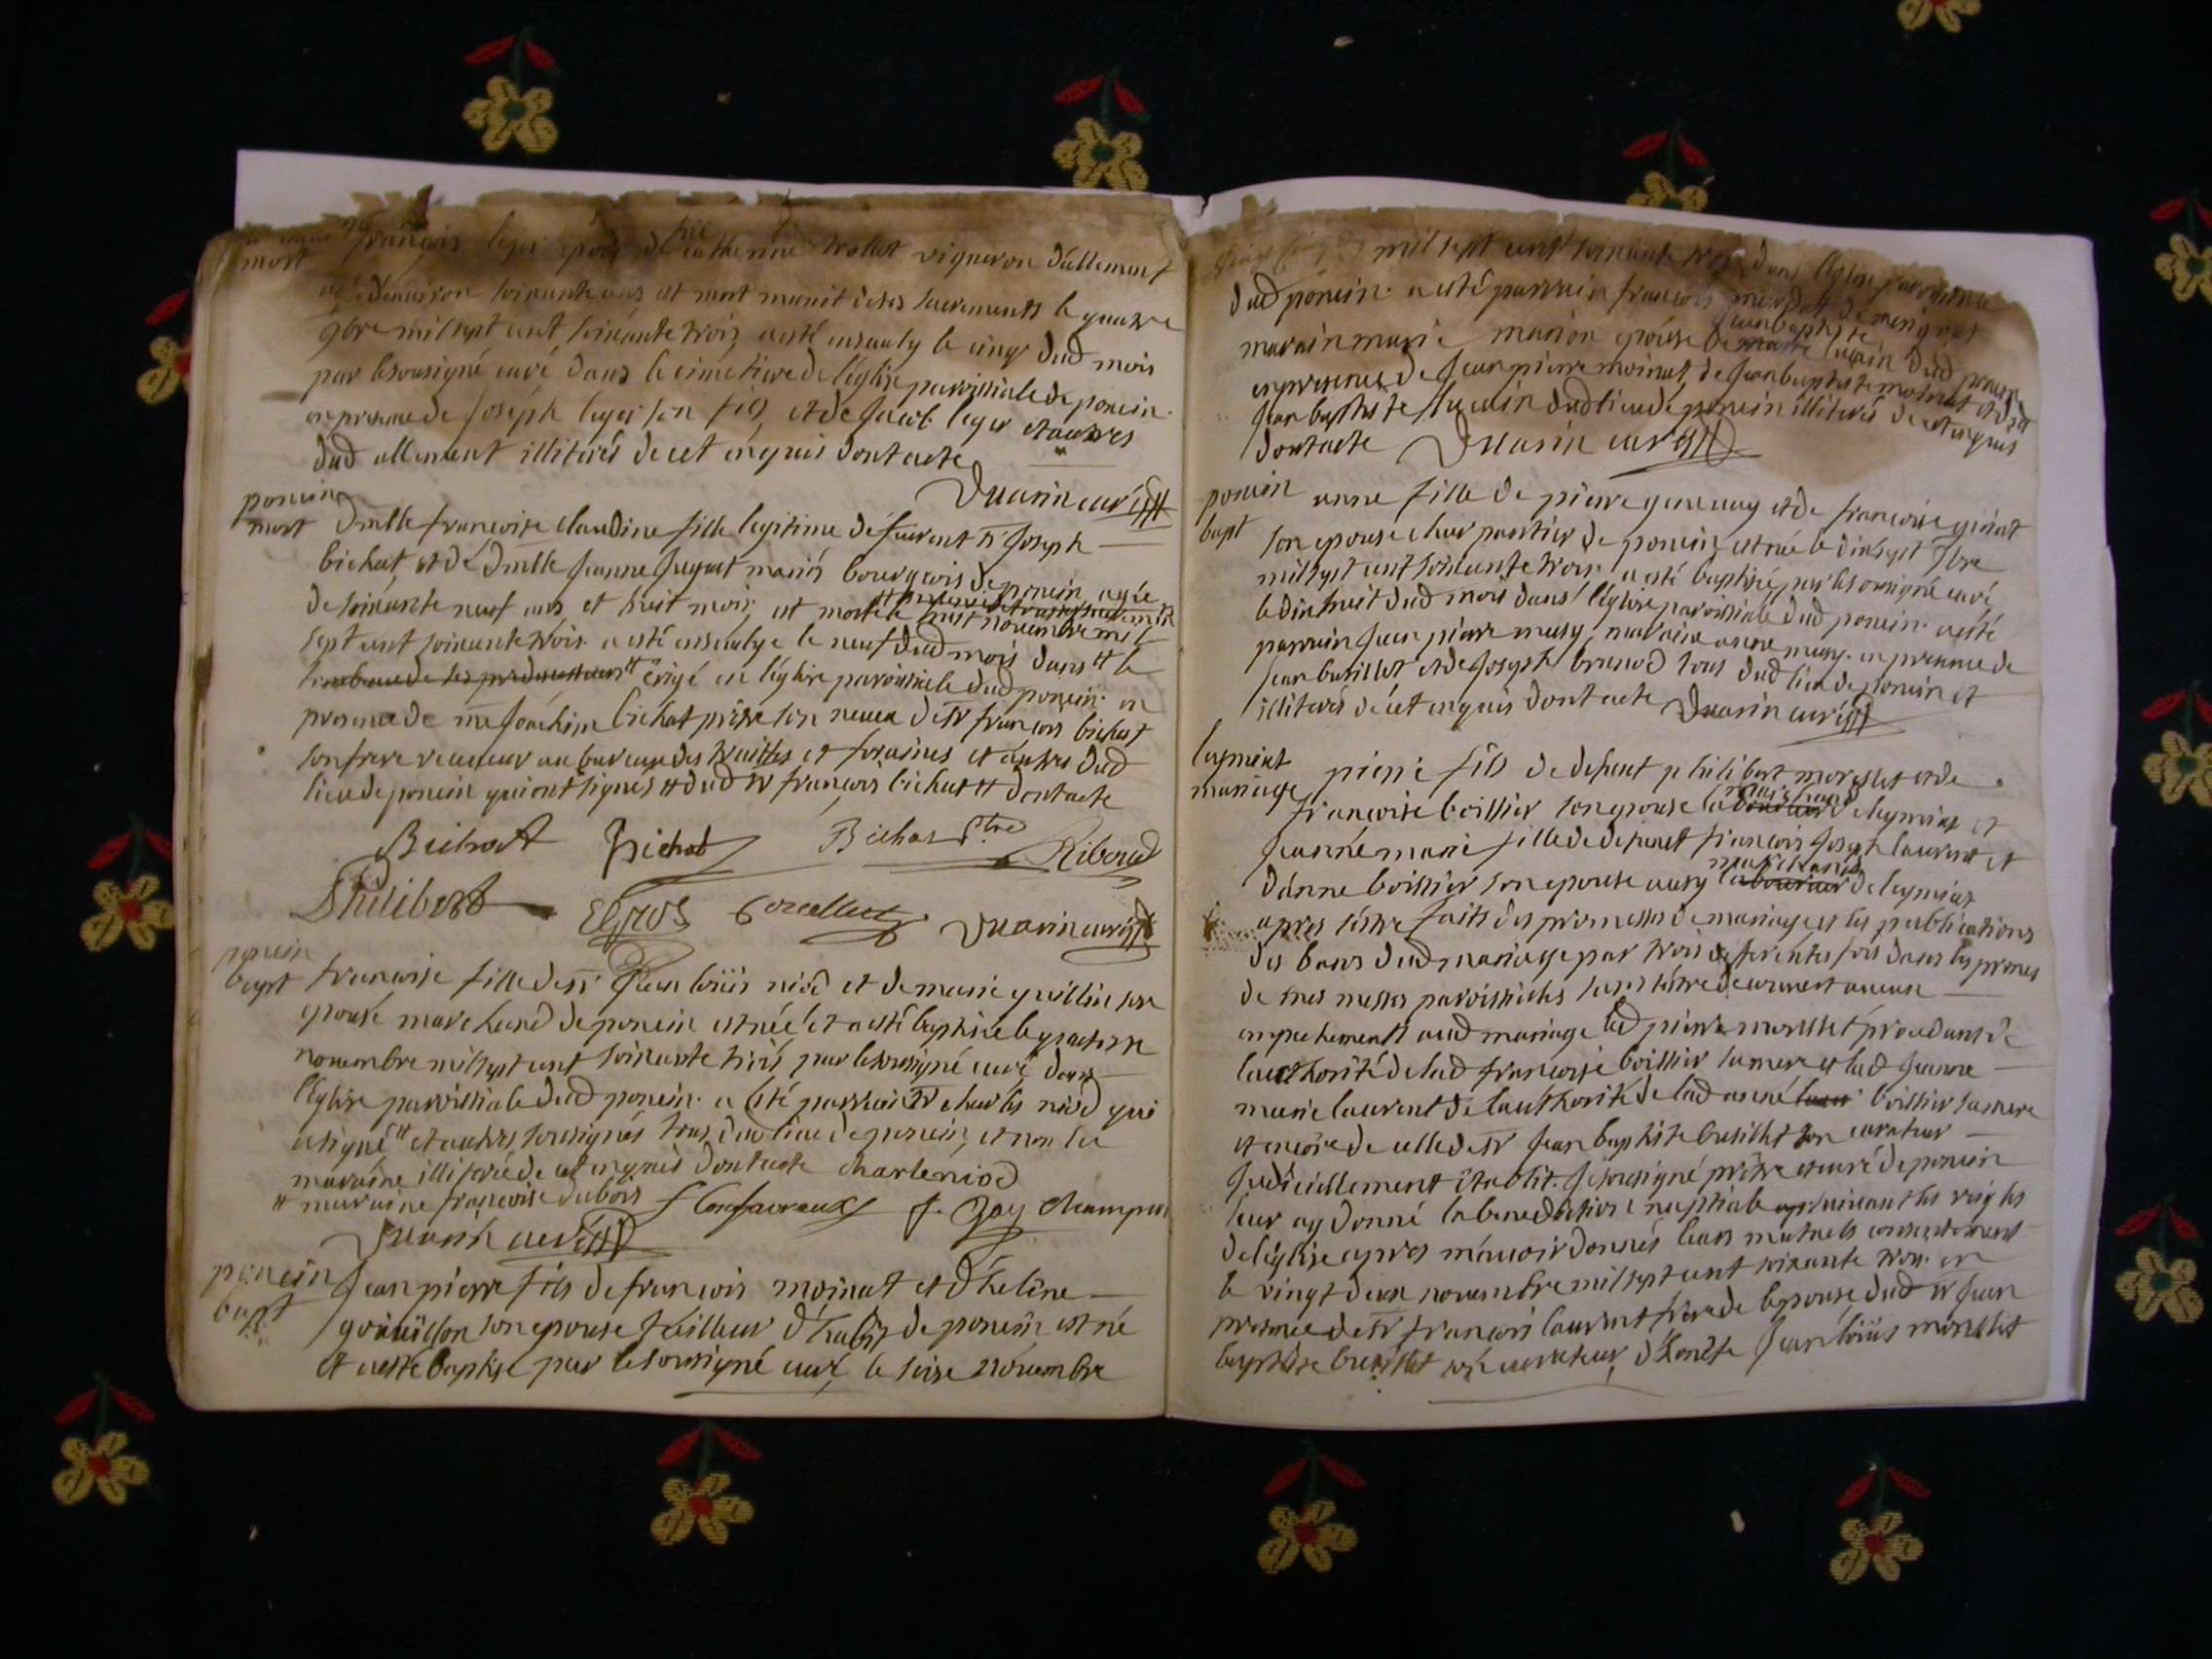 mort françois leger epoux de catherine trollat vigneron d'allement
agé d'environ soixante ans est mort munit de ses sacrements le quatre
9bre mil sept cent soixante trois a esté enseuely le cinq dud mois
par le sousigné curé dans le cimetiere de l'église paroissiale de poncin
en presence de joseph leger son fils et de jacob leger et autres
dud allement illiterés de cet enquis dont acte
Duarin curé
poncin
mort dmlle francoise claudine fille legitime de feu sr joseph
bichat, et de dmlle jeanne jugeat mariés bourgeois de poncin agée
de soixante neuf ans et huit mois, est morte le huit novembre mil
sept cent soixante trois a esté enseuelye le neuf dud mois dans le
tombeau de ses predecesseurs erigé en l'église paroissiale dud poncin en
presence de me joachim bichat prêtre son neveu de sr françois bichat
son frere receveur au bureau des traittes et foraines et autres dud
lieu de poncin qui ont signés dud sr françois bichat dont acte
Bichat Bichat Bichat Ptre Riboud
Philibert EGros Duarin curé
poncin
bapt francoise fille de sr jean loüis niod et de marie guillin son
epouse marchand de poncin est née et a esté baptisée le quatorze
novembre mil sept cent soixante trois par le sousigné curé dans
l'église paroissiale dud poncin a esté parrain sr charles niod qui
a signé et autres sousignés tous dud lieu de poncin, et non la
maraine illiterée de cet enquis dont acte charle niod
maraine francoise dubois f Confavreux f. Gay Champion
Duarin curé
poncin
bapt jean pierre fils de francois moinat et d'heline
goüillon son epouse tailleur d'habits de poncin est né
et a esté baptisé par le sousigné curé, le seise novembre
mil sept cent soixante trois dans l'église paroissiale
dud poncin a esté parrain francois de merignat
maraine marie marion epouse jean baptiste lucain dud poncin
en presence de jean pierre moinat, de jean baptiste moinat et de
jean baptiste lucain dud lieu de poncin illiterés de cet enquis
dont acte Duarin curé
poncin
bapt anne fille de pierre genevay et de francoise guinat
son epouse charpantier de poncin est née le dixsept 9bre
mil sept cent soixante trois a esté baptisée par le sousigné curé
le dix huit dud mois dans l'église paroissiale dud poncin a esté
parrain jean pierre musy, maraine anne musy en presence de
jean busillet et de joseph brunod tous dud lieu de poncin et
illiterés de cet enquis dont acte Duarin curé
leymiat
mariage pierre fils de defunt philibert morellet et de
francoise boissier son epouse marchand de leymiat et
jeanne marie fille de defunt francois joseph laurent et
d'anne boissier son epouse aussy marchands de leymiat
apres s'estre faits des promesses de mariage et les publications
des bans dud mariage par trois differentes fois dans les prones
de mes messes paroissiales sans s'être decouvert aucun
empechement aud mariage led pierre morellet procedant de
l'authorité de lad francoise boissier sa mere et lad jeanne
marie laurent de l'authorité de lad anne boissier sa mere
et encore de celle de sr jean baptiste busillet son curateur
judiciellement établit. je sousigné prêtre et curé de poncin
leur ay donné la benediction nuptiale suivant les reigles
de l'église apres m'avoir donnés leurs mutuels consentement
le vingt deux novembre mil sept cent soixante trois en
presence de sr francois laurent frere de l'epouse dud sr jean
baptiste busillet son curateur, d'honête jean loüis morellet